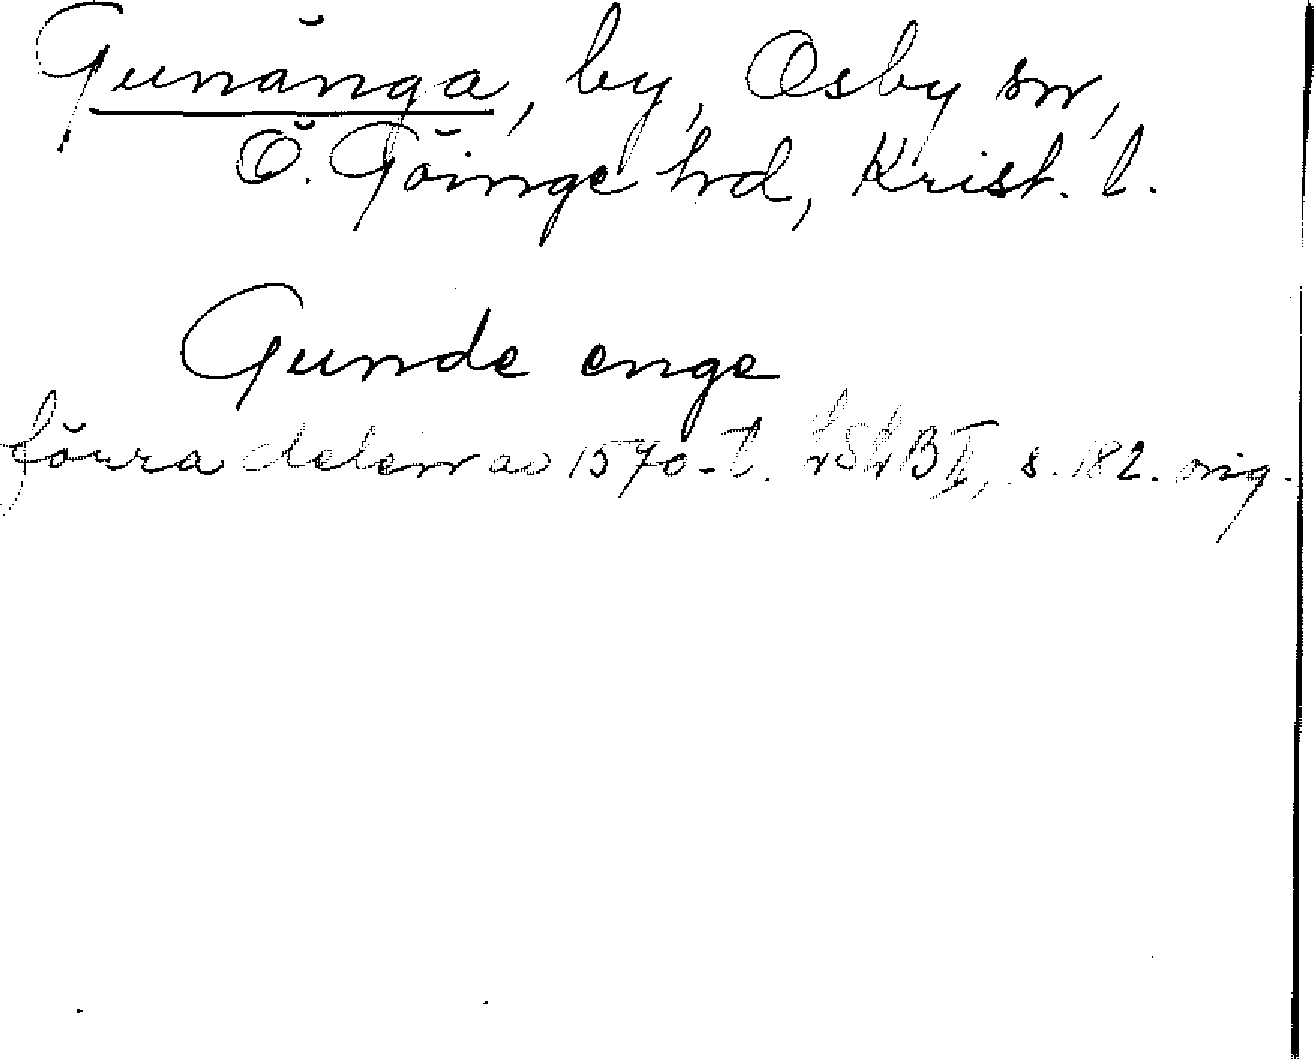 Gunänga, by, Osby sn,
Ö. Göinge hd, Krist. l.
Gunde enge
förra delen av 1570-t. LSkB II, s. 182. orig.